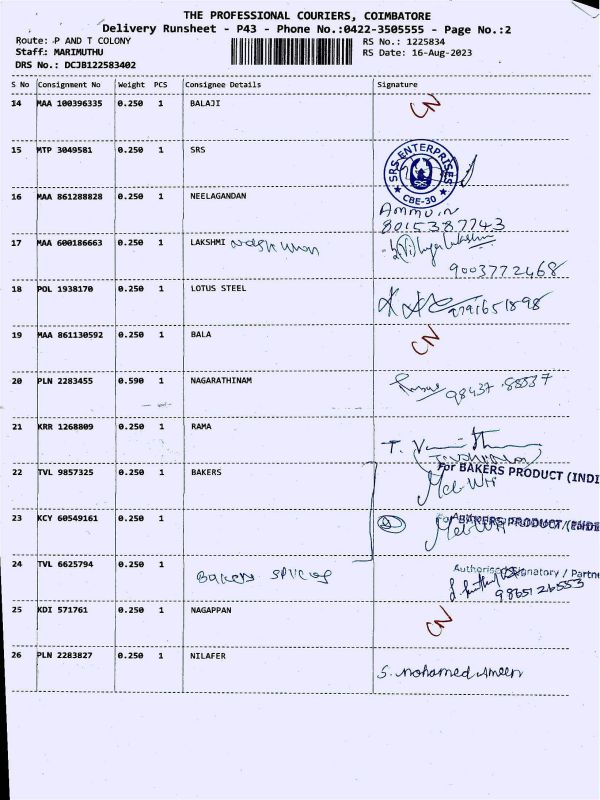 THE PROFESSIONAL COURIERS, COIMBATORE
Delivery Runsheet - P43 - Phone No.:0422-3505555 - Page No.:2
Route: P AND T COLONY
RS No.: 1225834
Staff: MARIMUTHU
RS Date: 16-Aug-2023
DRS No.: DCJB122583402
S No Consignment No Weight PCS Consignee Details Signature
14 MAA 100396335 0.250 1 BALAJI CN
15 MTP 3049581 0.250 1 SRS
SRS ENTERPRISES
CBE-30
16 MAA 861288828 0.250 1 NEELAGANDAN
8015387743
17 MAA 600186663 0.250 1 LAKSHMI
9003772468
18 POL 1938170 0.250 1 LOTUS STEEL
9791651898
19 MAA 861130592 0.250 1 BALA CN
20 PLN 2283455 0.590 1 NAGARATHINAM
98437 88537
21 KRR 1268809 0.250 1 RAMA
For BAKERS PRODUCT (INDI
22 TVL 9857325 0.250 1 BAKERS
23 KCY 60549161 0.250 1
For BAKERS PRODUCT
24 TVL 6625794 0.250 1
Authorised Signatory / Partne
9865126553
25 KDI 571761 0.250 1 NAGAPPAN CN
26 PLN 2283827 0.250 1 NILAFER
S. mohamed Ameen